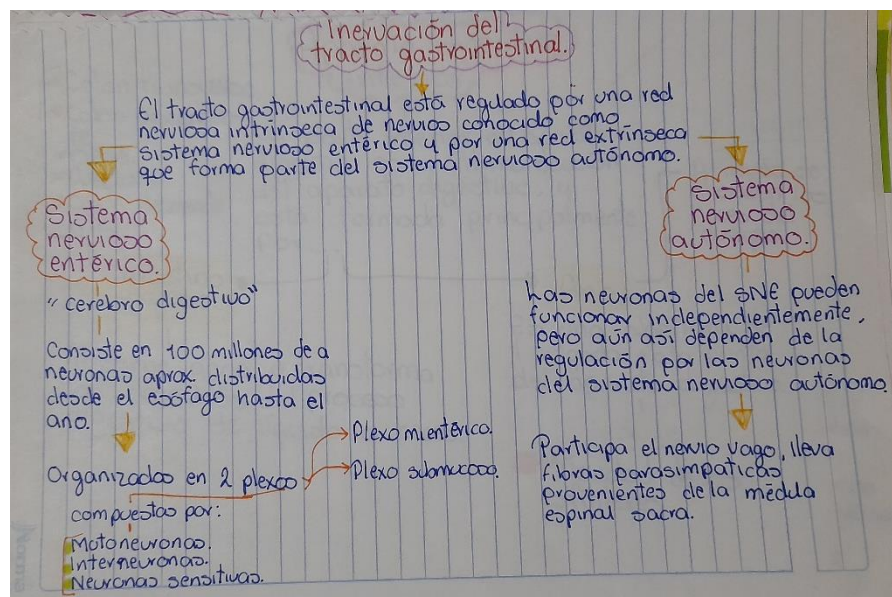 Inervación del
tracto gastrointestinal.
El tracto gastrointestinal está regulado por una red
nerviosa intrínseca de nervios conocido como
sistema nervioso entérico y por una red extrínseca
que forma parte del sistema nervioso autónomo.
Sistema
nervioso
entérico.
"cerebro digestivo"
Consiste en 100 millones de a
neuronas aprox. distribuidas
desde el esófago hasta el
ano.
Organizados en 2 plexos
Plexo mientérico.
Plexo submucoso.
compuestas por:
Motoneuronas.
Interneuronas.
Neuronas sensitivas.
Sistema
nervioso
autónomo.
Las neuronas del SNE pueden
funcionar independientemente,
pero aún así dependen de la
regulación por las neuronas
del sistema nervioso autónomo.
Participa el nervio vago, lleva
fibras parasimpáticas
provenientes de la médula
espinal sacra.